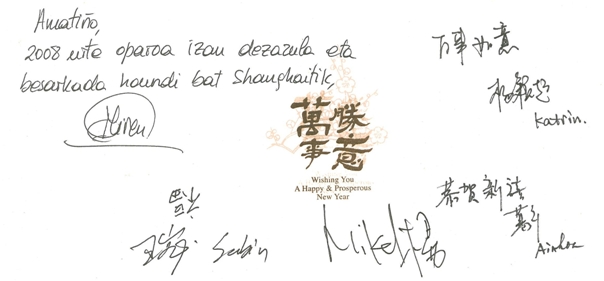 Amatiño,
2008 urte oparoa izan dezazula eta
besarkada haundi bat Shanghaitik,
Miren
万事如意
Katrin.
萬事
勝意
Wishing You
A Happy & Prosperous
New Year
恭贺新禧
Ainhoa
Sabin
Mikel